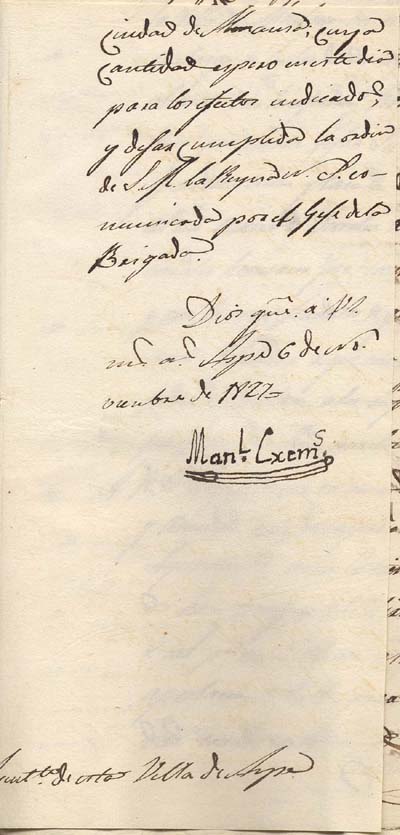 Ciudad de Manresa; cuya
cantidad espero en este dia
para los efectos indicados,
y dejar cumplida la orden
de S. M. la Reyna N. S. co-
municada por el Gefe de la
Brigada.
Dios gue. a V.
ms. as. 6 de No-
viembre de 1827=
Manl. Cxems
de esta Villa de